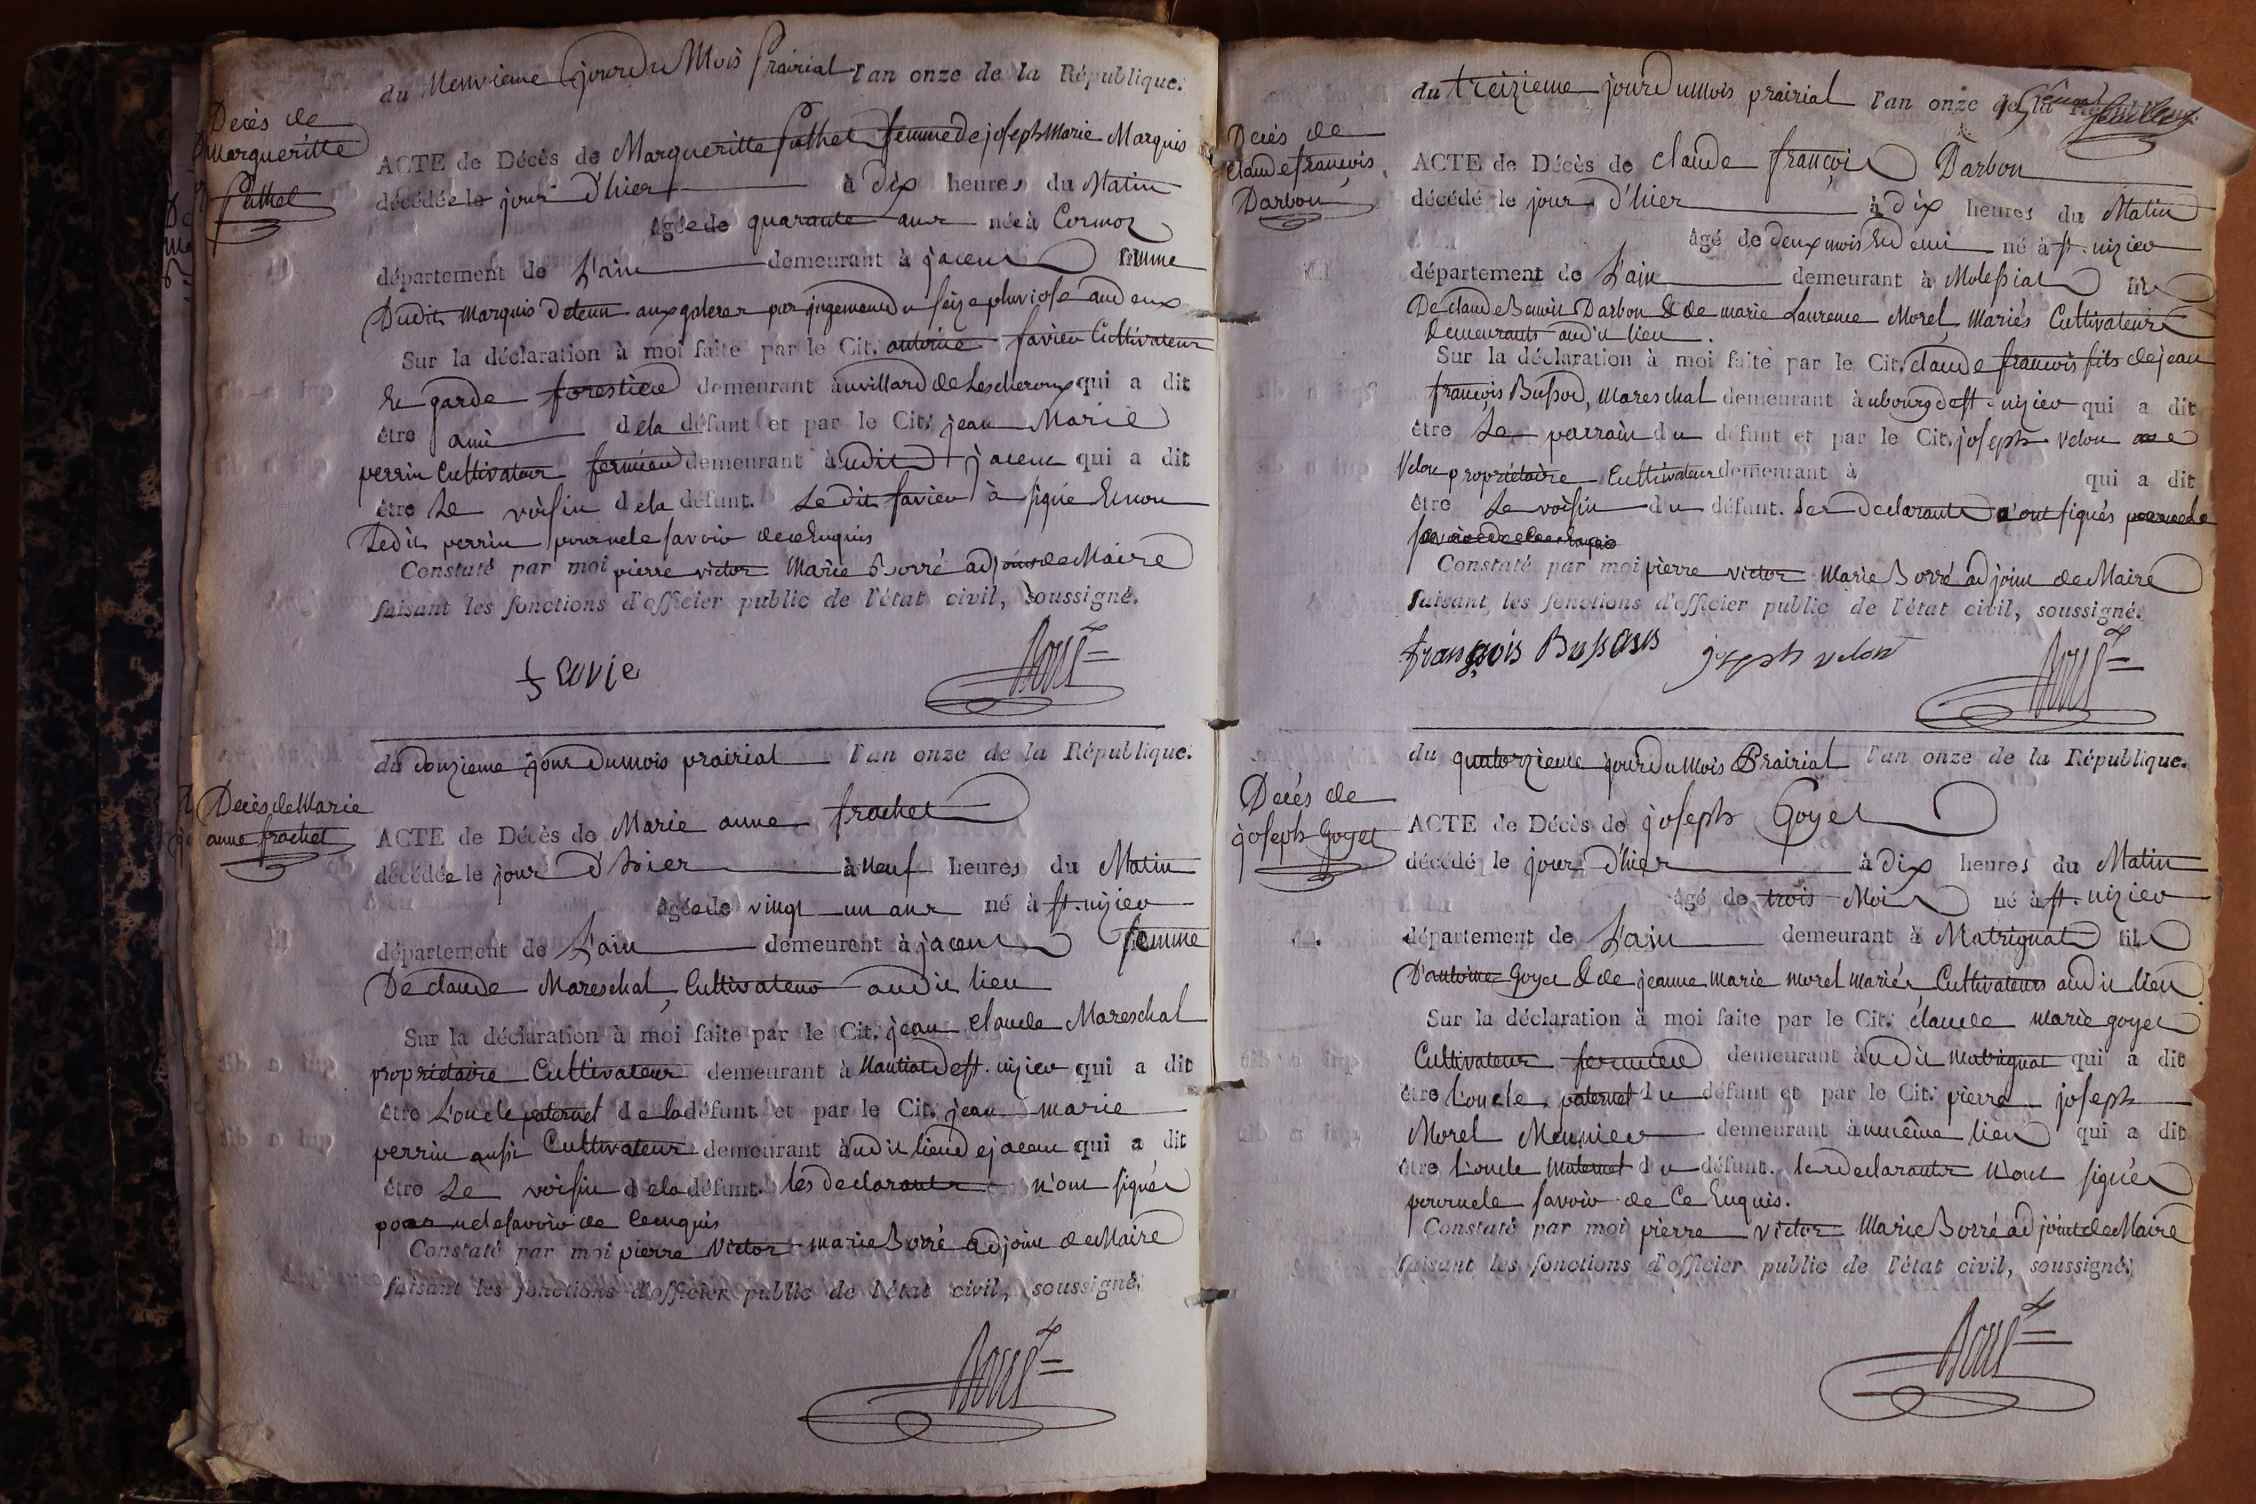 du Neuvieme jour du Mois Prairial l'an onze de la République.
Decès de
Margueritte
Puthet
ACTE de Décès de Margueritte Puthet femme de joseph Marie Marquis
décédée le jour d'hier à dix heures du Matin
âgée de quarante ans née à Cormoz
département de L'ain demeurant à jaceur femme
Dudit Marquis detenu aux galeres par jugement du seize pluviose an deux
Sur la déclaration à moi faite par le Cit. antoine favier Cultivateur
Et garde forestier demeurant à uvillard de Lescheroux qui a dit
être ami de la défunt et par le Cit. jean Marie
perrin Cultivateur fermier demeurant àudit jaceur qui a dit
être Le voisin de la défunt. Le dit favier à signé Et non
Ledit perrin pour ne le savoir de ce Enquis
Constaté par moi pierre victor Marie Borré adjoint de Maire
faisant les fonctions d'officier public de l'état civil, soussigné.
favie
Borré
du douzieme jour du mois prairial l'an onze de la République.
Decès de Marie
anne frachet
ACTE de Décès de Marie anne frachet
décédée le jour d'hier à Neuf heures du Matin
âgée de vingt un ans né à st. nizier
département de L'ain demeurant à jaceur femme
De claude Mareschal Cultivateur audit lieu
Sur la déclaration à moi faite par le Cit. jean claude Mareschal
propriétaire Cultivateur demeurant à Nantiat de st. nizier qui a dit
être L'oncle paternel de la défunt et par le Cit. jean marie
perrin aussi Cultivateur demeurant àudit lieu de jaceur qui a dit
être Le voisin de la défunt. les declarants n'ont signés
pour ne le savoir de ce enquis
Constaté par moi pierre victor marie Borré adjoint de Maire
faisant les fonctions d'officier public de l'état civil, soussigné.
Borré
du treizieme jour du mois prairial l'an onze de la
Decès de
claude françois
Darbon
ACTE de Décès de claude françois Darbon
décédé le jour d'hier à dix heures du Matin
âgé de deux mois Et demi né à st. nizier
département de L'ain demeurant à Molessiat fils
De claude Benoit Darbon & de marie Laurence Morel Mariés Cultivateurs
Demeurants audit lieu.
Sur la déclaration à moi faite par le Cit. claude françois fils de jean
françois Bussod, mareschal demeurant àu bourg de st. nizier qui a dit
être Le parrain du défunt et par le Cit. joseph velon
Velon propriétaire Cultivateur demeurant à qui a dit
être Le voisin du défunt. Les declarants ont signés
Constaté par moi pierre victor Marie Borré adjoint de Maire
faisant les fonctions d'officier public de l'état civil, soussigné.
françois Bussod joseph velon
Borré
du quatorzieme jour du Mois Prairial l'an onze de la République.
Decès de
joseph Goyet
ACTE de Décès de joseph Goyet
décédé le jour d'hier à dix heures du Matin
âgé de trois Mois né à st. nizier
département de L'ain demeurant à Matrignat fils
D'antoine Goyet & de jeanne marie morel mariés Cultivateurs audit lieu
Sur la déclaration à moi faite par le Cit. claude marie goyet
Cultivateur fermier demeurant àudit matrignat qui a dit
être L'oncle paternel du défunt et par le Cit. pierre joseph
Morel Meunier demeurant àu même lieu qui a dit
être L'oncle Maternel du défunt. les declarants N'ont signés
pour ne le savoir de Ce Enquis.
Constaté par moi pierre victor Marie Borré adjoint de Maire
faisant les fonctions d'officier public de l'état civil, soussigné.
Borré